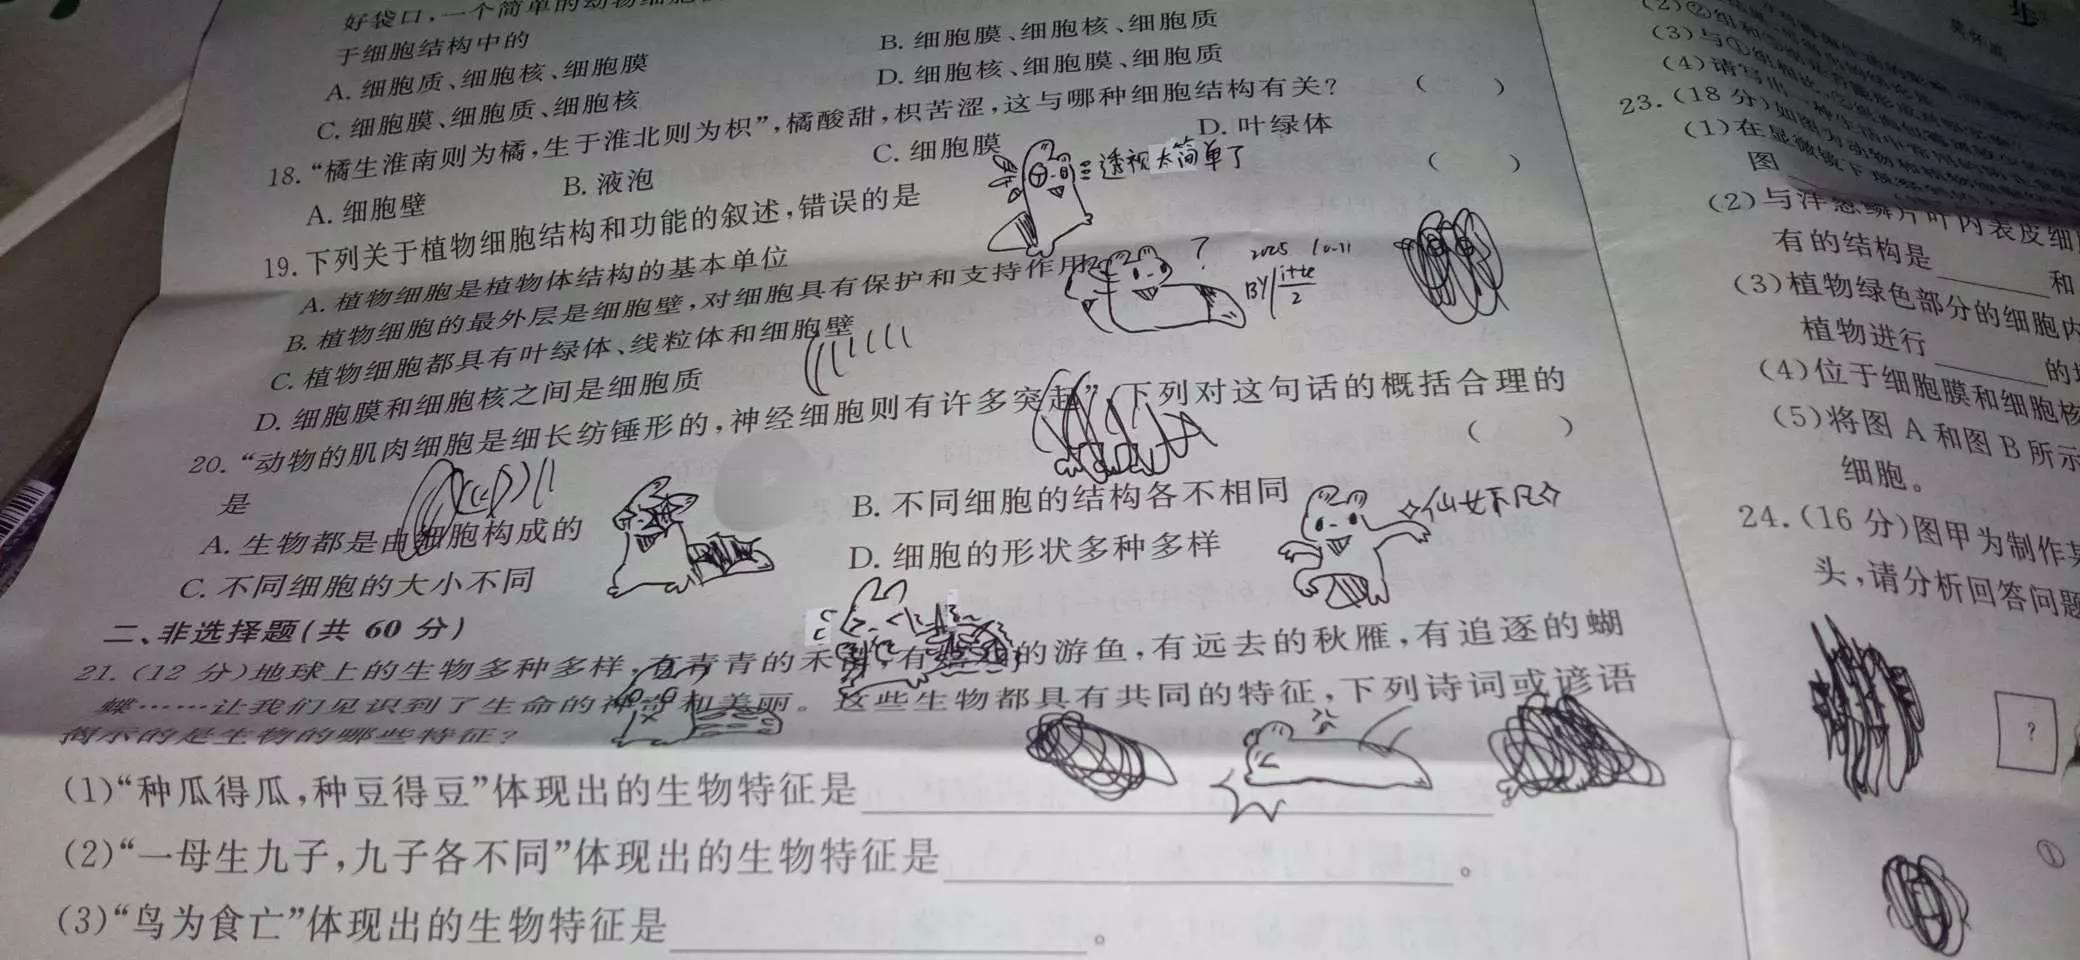 好袋口,一个简单的动物细胞
于细胞结构中的
A. 细胞质、细胞核、细胞膜
B. 细胞膜、细胞核、细胞质
C. 细胞膜、细胞质、细胞核
D. 细胞核、细胞膜、细胞质
18. “橘生淮南则为橘,生于淮北则为枳”,橘酸甜,枳苦涩,这与哪种细胞结构有关? ( )
A. 细胞壁 B. 液泡 C. 细胞膜 D. 叶绿体
透视太简单了
19. 下列关于植物细胞结构和功能的叙述,错误的是 ( )
A. 植物细胞是植物体结构的基本单位
B. 植物细胞的最外层是细胞壁,对细胞具有保护和支持作用
? 2025 10-11
BY
C. 植物细胞都具有叶绿体、线粒体和细胞壁
D. 细胞膜和细胞核之间是细胞质
20. “动物的肌肉细胞是细长纺锤形的,神经细胞则有许多突起”,下列对这句话的概括合理的
是 ( )
A. 生物都是由细胞构成的
B. 不同细胞的结构各不相同
仙女下凡
C. 不同细胞的大小不同
D. 细胞的形状多种多样
二、非选择题(共 60 分)
21. (12 分)地球上的生物多种多样,有青青的禾苗,有的游鱼,有远去的秋雁,有追逐的蝴
蝶……让我们见识到了生命的神奇和美丽。这些生物都具有共同的特征,下列诗词或谚语
揭示的是生物的哪些特征?
(1)“种瓜得瓜,种豆得豆”体现出的生物特征是 。
(2)“一母生九子,九子各不同”体现出的生物特征是 。
(3)“鸟为食亡”体现出的生物特征是 。
(3)与①组相比,
(4)请写出一种生活中常用的
23. (18 分)如图为动物和植物细胞
(1)在显微镜下观察
图
(2)与洋葱鳞片叶内表皮细
有的结构是 和
(3)植物绿色部分的细胞内
植物进行 的
(4)位于细胞膜和细胞核
(5)将图 A 和图 B 所示
细胞。
24. (16 分)图甲为制作某
头,请分析回答问题
?
①